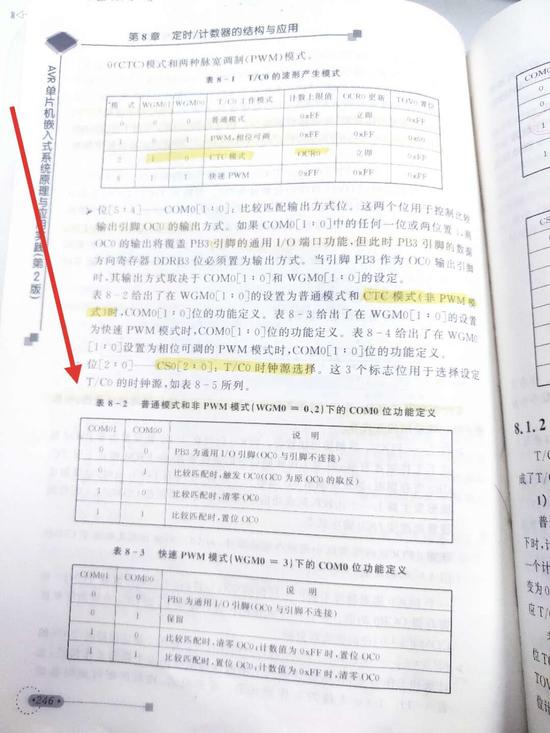 第8章 定时/计数器的结构与应用
AVR单片机嵌入式系统原理与应用实践(第2版)
0(CTC)模式和两种脉宽调制(PWM)模式。
表8-1 T/C0的波形产生模式
模式 WGM01 WGM00 T/C0工作模式 计数上限值 OCR0更新 TOV0置位
0 0 0 普通模式 0xFF 立即 0xFF
1 0 1 PWM,相位可调 0xFF
2 1 0 CTC模式 OCR0 立即 0xFF
1 1 快速PWM 0xFF 0xFF
位[5:4]——COM0[1:0]:比较匹配输出方式位。这两个位用于控制比较
输出引脚OC0的输出方式。如果COM0[1:0]中的任何一位或两位置1,则
OC0的输出将覆盖PB3引脚的通用I/O端口功能,但此时PB3引脚的数据
方向寄存器DDRB3位必须置为输出方式。当引脚PB3作为OC0输出引脚
时,其输出方式取决于COM0[1:0]和WGM0[1:0]的设定。
表8-2给出了在WGM0[1:0]的设置为普通模式和CTC模式(非PWM模
式)时,COM0[1:0]位的功能定义。表8-3给出了在WGM0[1:0]的设置
为快速PWM模式时,COM0[1:0]位的功能定义。表8-4给出了在WGM0
[1:0]设置为相位可调的PWM模式时,COM0[1:0]位的功能定义。
位[2:0]——CS0[2:0]:T/C0时钟源选择。这3个标志位用于选择设定
T/C0的时钟源,如表8-5所列。
表8-2 普通模式和非PWM模式(WGM0=0、2)下的COM0位功能定义
COM01 COM00 说明
0 0 PB3为通用I/O引脚(OC0与引脚不连接)
0 1 比较匹配时,触发OC0(OC0为原OC0的取反)
1 0 比较匹配时,清零OC0
1 1 比较匹配时,置位OC0
表8-3 快速PWM模式(WGM0=3)下的COM0位功能定义
COM01 COM00 说明
0 0 PB3为通用I/O引脚(OC0与引脚不连接)
0 1 保留
1 0 比较匹配时,清零OC0;计数值为0xFF时,置位OC0
1 1 比较匹配时,置位OC0;计数值为0xFF时,清零OC0
246
8.1.2
T/C
成了T/C
1)
普
下时,计
一个计
变为0
应T/
位T
TOV
位计